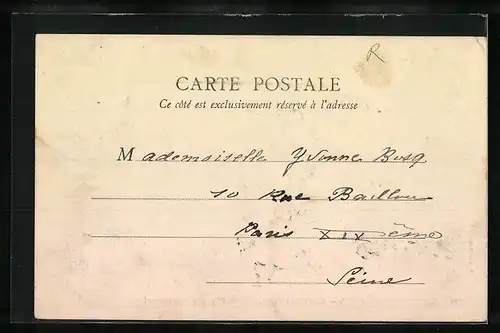 R
CARTE POSTALE
Ce côté est exclusivement réservé à l'adresse
Mademoiselle Yvonne Bosq
10 Rue Baillou
Paris XIX ème
Seine